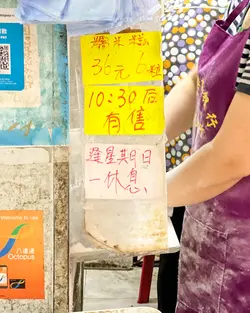 36元
10:30后
有售
逢星期日
一休息
welcome to use
八達通
Octopus